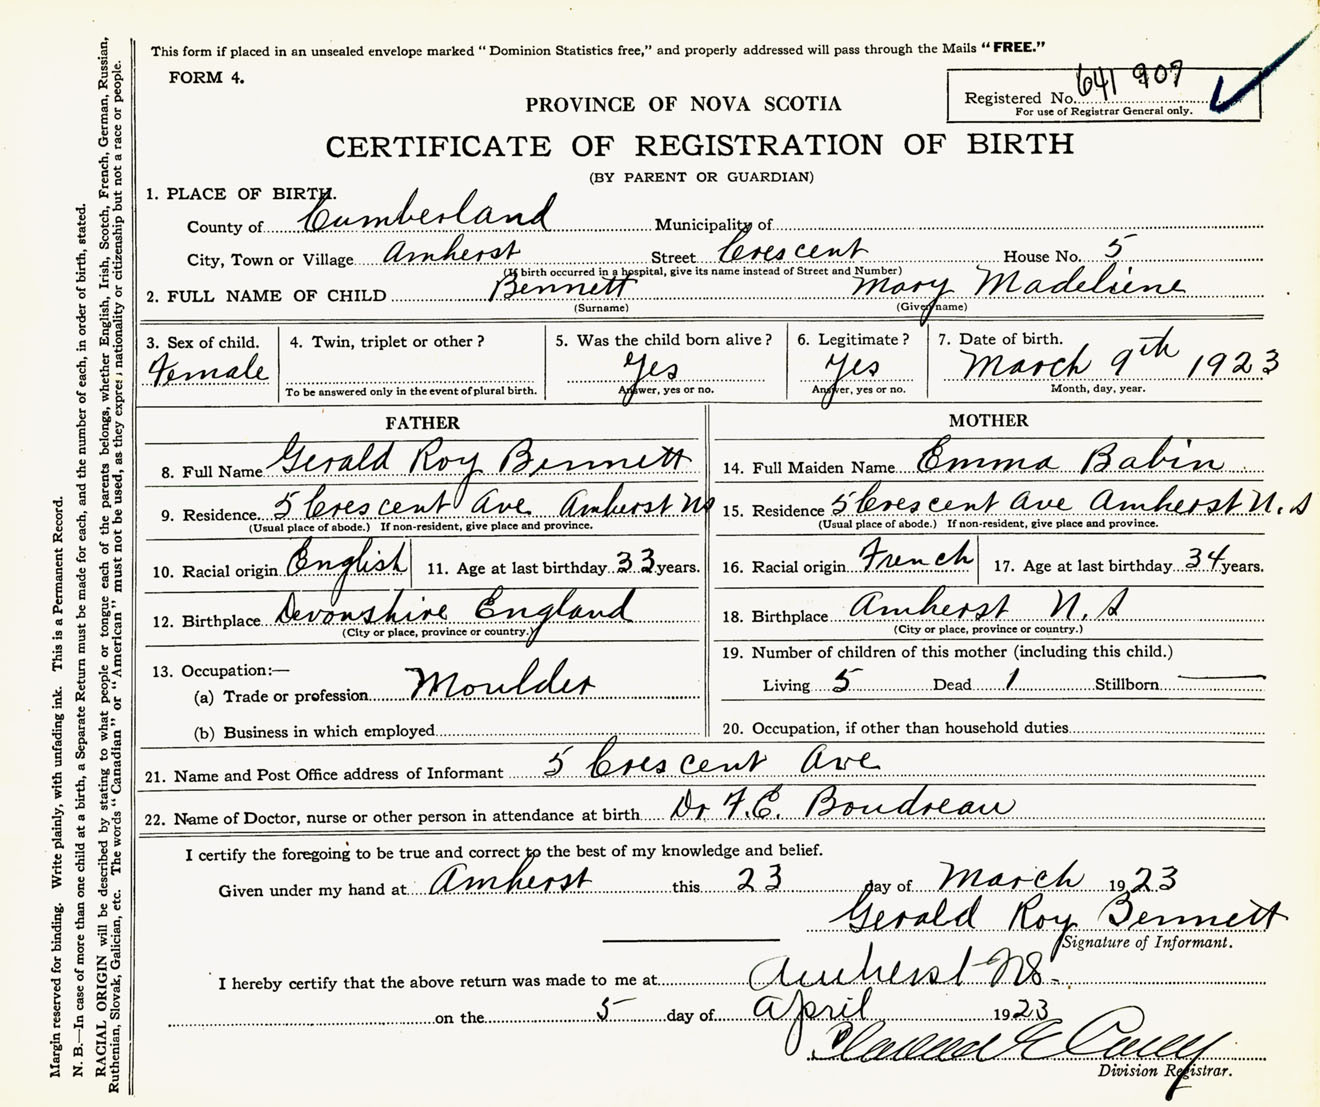 This form if placed in an unsealed envelope marked "Dominion Statistics free," and properly addressed will pass through the Mails "FREE."
FORM 4.
641 907
Registered No.
For use of Registrar General only.
PROVINCE OF NOVA SCOTIA
CERTIFICATE OF REGISTRATION OF BIRTH
(BY PARENT OR GUARDIAN)
1. PLACE OF BIRTH.
County of Cumberland Municipality of
City, Town or Village Amherst Street Crescent House No. 5
(If birth occurred in a hospital, give its name instead of Street and Number)
2. FULL NAME OF CHILD Bennett Mary Madeliene
(Surname) (Given name)
3. Sex of child. 4. Twin, triplet or other? 5. Was the child born alive? 6. Legitimate? 7. Date of birth.
Female Yes Yes March 9th 1923
To be answered only in the event of plural birth. Answer, yes or no. Answer, yes or no. Month, day, year.
FATHER MOTHER
8. Full Name Gerald Roy Bennett 14. Full Maiden Name Emma Babin
9. Residence 5 Crescent Ave Amherst NS 15. Residence 5 Crescent Ave Amherst N.S
(Usual place of abode.) If non-resident, give place and province. (Usual place of abode.) If non-resident, give place and province.
10. Racial origin English 11. Age at last birthday 33 years. 16. Racial origin French 17. Age at last birthday 34 years.
12. Birthplace Devonshire England 18. Birthplace Amherst N.S
(City or place, province or country.) (City or place, province or country.)
13. Occupation:— 19. Number of children of this mother (including this child.)
(a) Trade or profession Moulder Living 5 Dead 1 Stillborn —
(b) Business in which employed 20. Occupation, if other than household duties
21. Name and Post Office address of Informant 5 Crescent Ave
22. Name of Doctor, nurse or other person in attendance at birth Dr F.E. Boudreau
I certify the foregoing to be true and correct to the best of my knowledge and belief.
Given under my hand at Amherst this 23 day of March 1923
Gerald Roy Bennett
Signature of Informant.
I hereby certify that the above return was made to me at Amherst NS-
on the 5 day of April 1923
Division Registrar.
Margin reserved for binding. Write plainly, with unfading ink. This is a Permanent Record.
N. B.—In case of more than one child at a birth, a Separate Return must be made for each, and the number of each, in order of birth, stated.
RACIAL ORIGIN will be described by stating to what people or tongue each of the parents belongs, whether English, Irish, Scotch, French, German, Russian,
Ruthenian, Slovak, Galician, etc. The words "Canadian" or "American" must not be used, as they express nationality or citizenship but not a race or people.